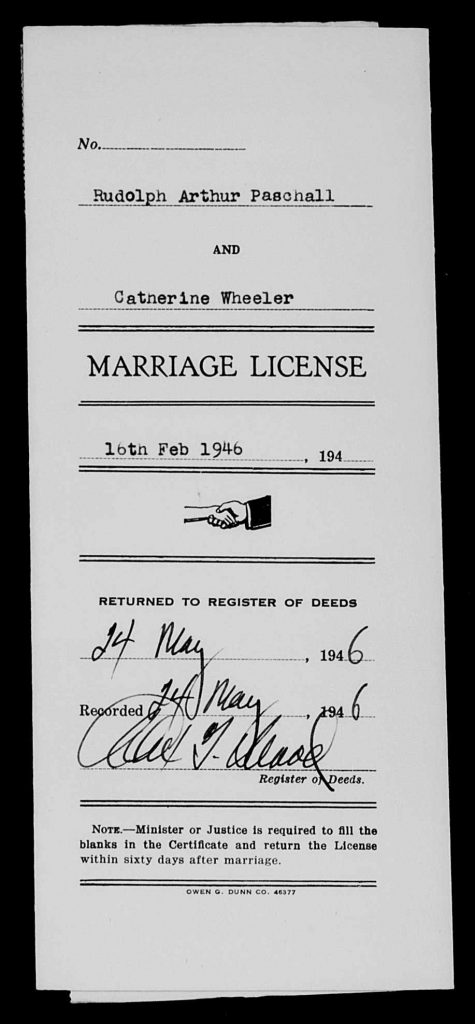 No.
Rudolph Arthur Paschall
AND
Catherine Wheeler
MARRIAGE LICENSE
16th Feb 1946, 194
RETURNED TO REGISTER OF DEEDS
24 May, 1946
Recorded 24 May, 1946
Register of Deeds.
NOTE.—Minister or Justice is required to fill the
blanks in the Certificate and return the License
within sixty days after marriage.
OWEN G. DUNN CO. 46377